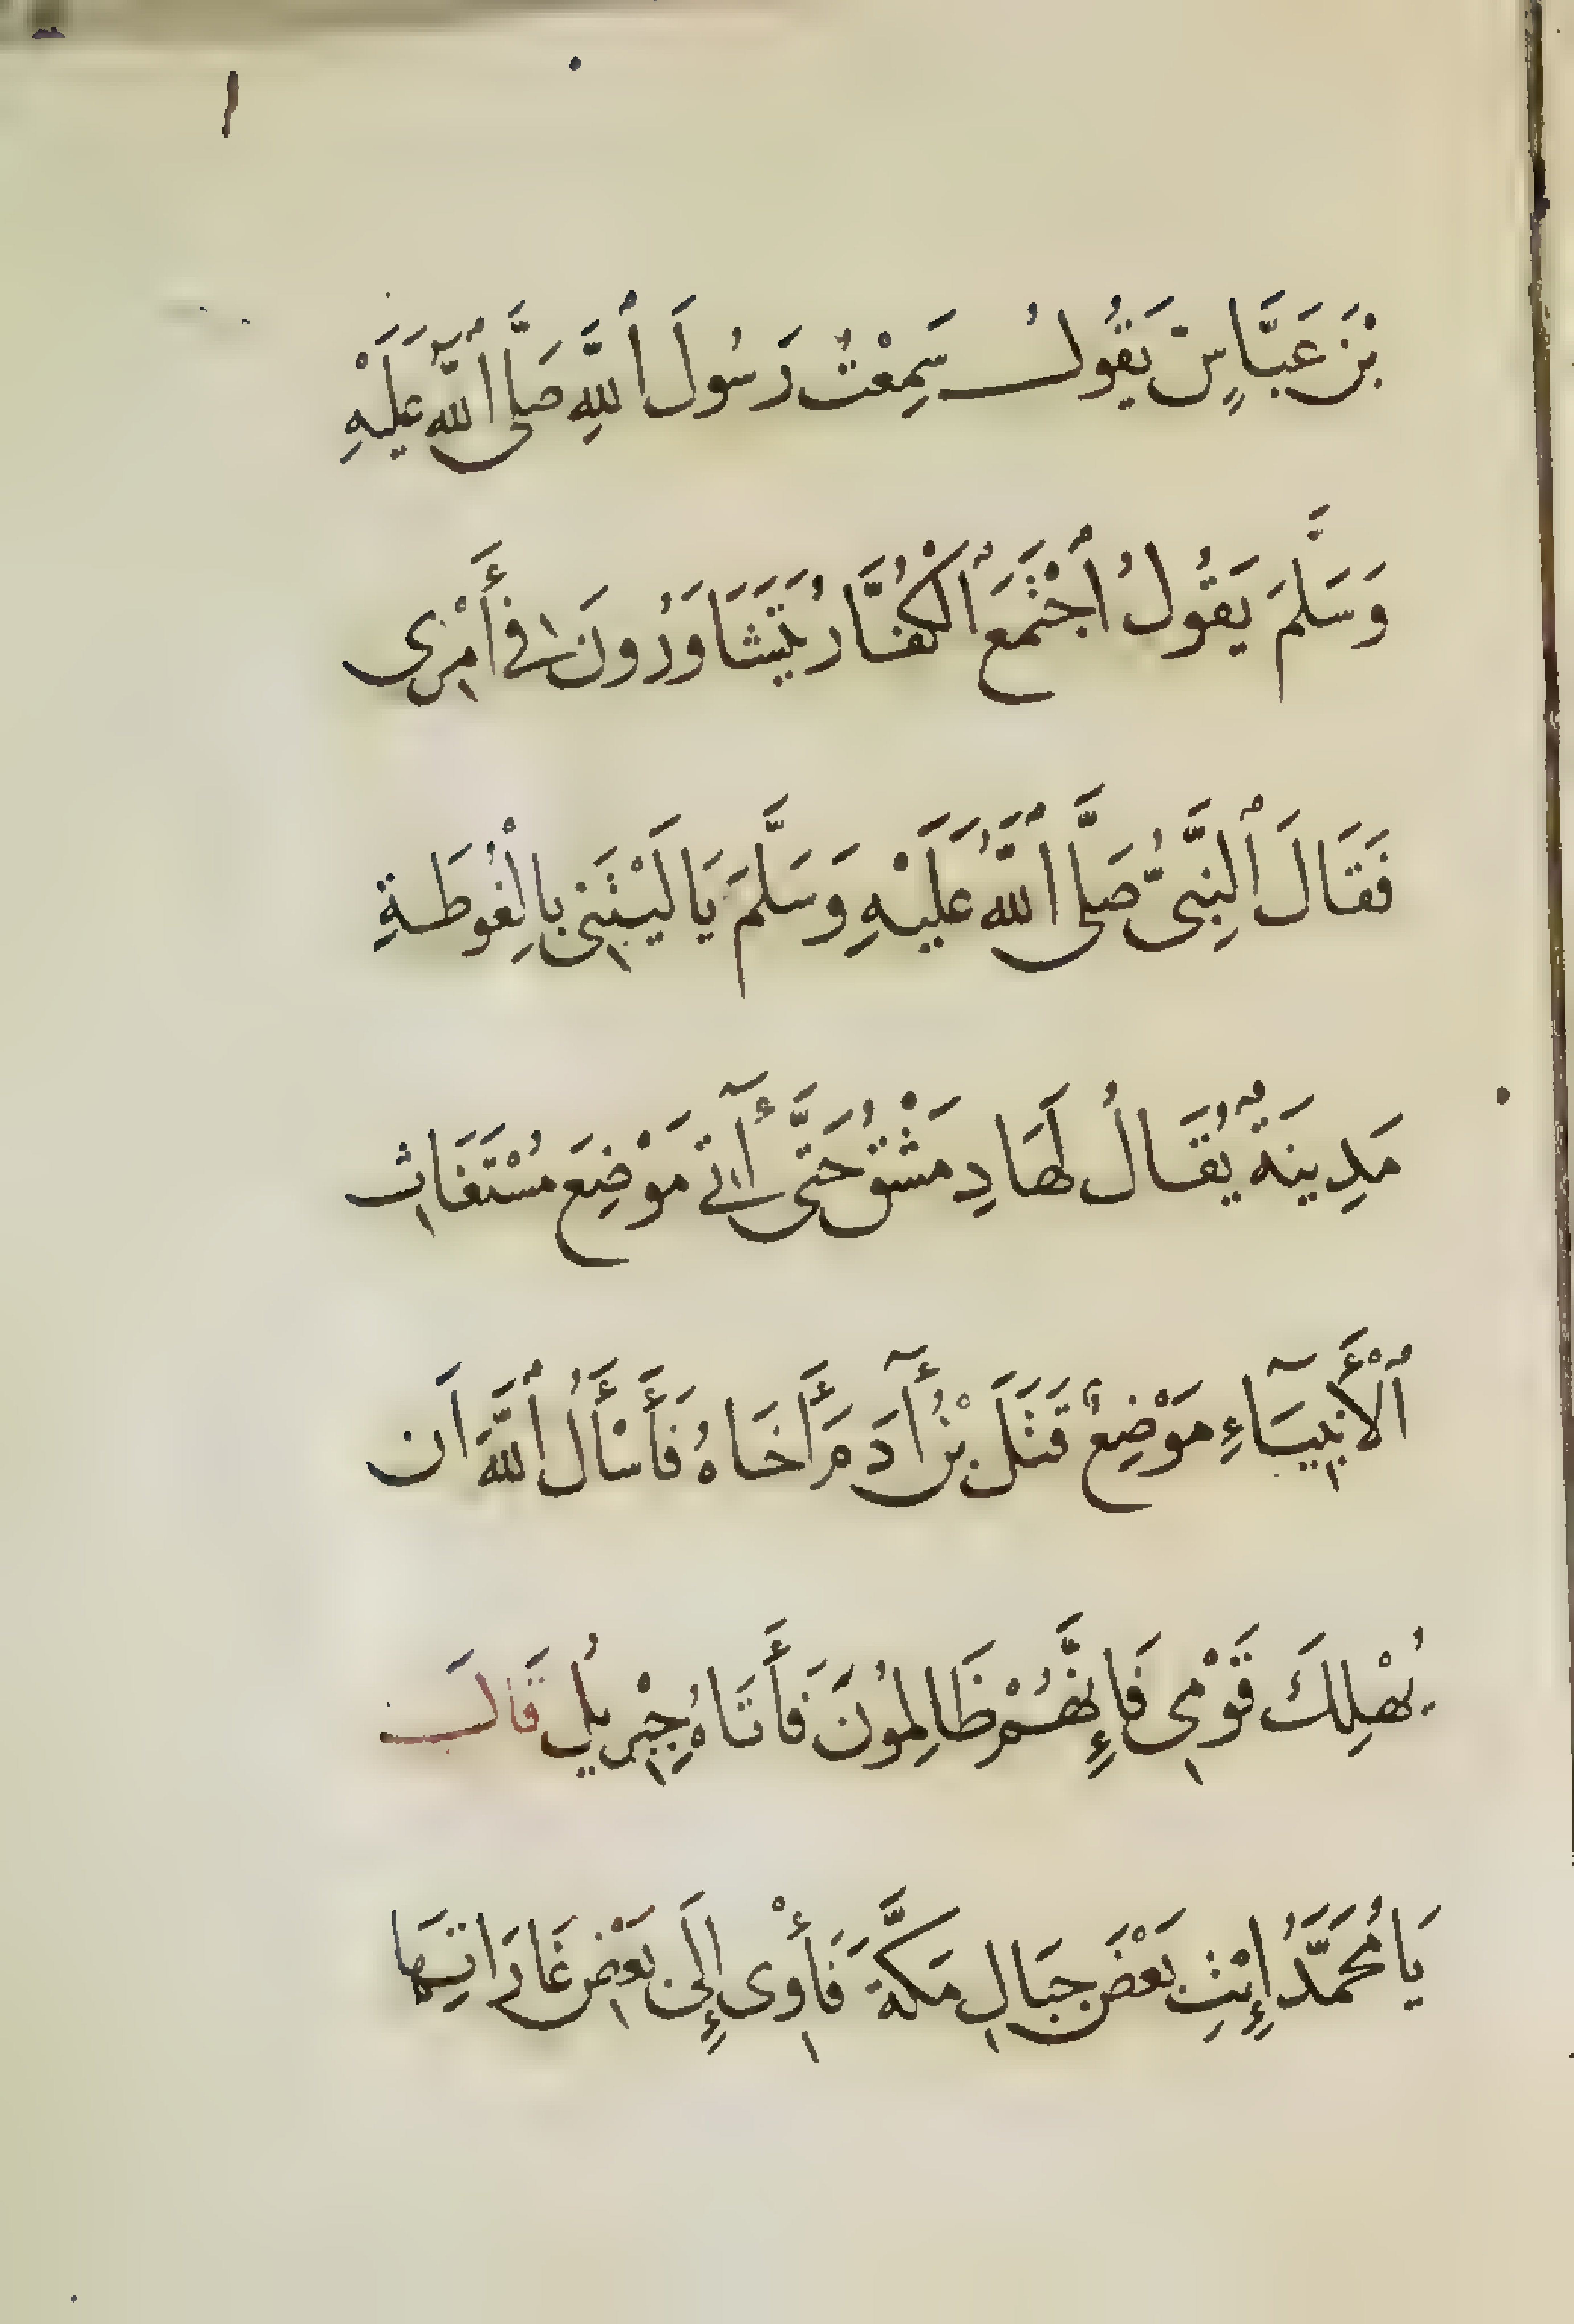 ا
بْنَ عَبَّاسٍ يَقُولُ سَمِعْتُ رَسُولَ ٱللَّهِ صَلَّى ٱللَّهُ عَلَيْهِ
وَسَلَّمَ يَقُولُ ٱجْتَمَعَ ٱلْكُفَّارُ يَتَشَاوَرُونَ فِي أَمْرِى
فَقَالَ ٱلنَّبِىُّ صَلَّى ٱللَّهُ عَلَيْهِ وَسَلَّمَ يَا لَيْتَنِى بِالْغُوطَةِ
مَدِينَةٌ يُقَالُ لَهَا دِمَشْقُ حَتَّى أۤتِي مَوْضِعَ مُسْتَغَاثِ
ٱلْأَنْبِيَآءِ مَوْضِعٌ قَتَلَ بْنُ أۤدَمَ أَخَاهُ فَأَسْأَلُ ٱللَّهَ اَن
يُهْلِكَ قَوْمِى فَإِنَّهُمْ ظَالِمُونَ فَأَتَاهُ جِبْرِيلُ قَالَ
يَا مُحَمَّدُ إِئْتِ بَعْضَ جِبَالِ مَكَّةَ فَأْوِى إِلَى بَعْضِ غَارَاتِهَا